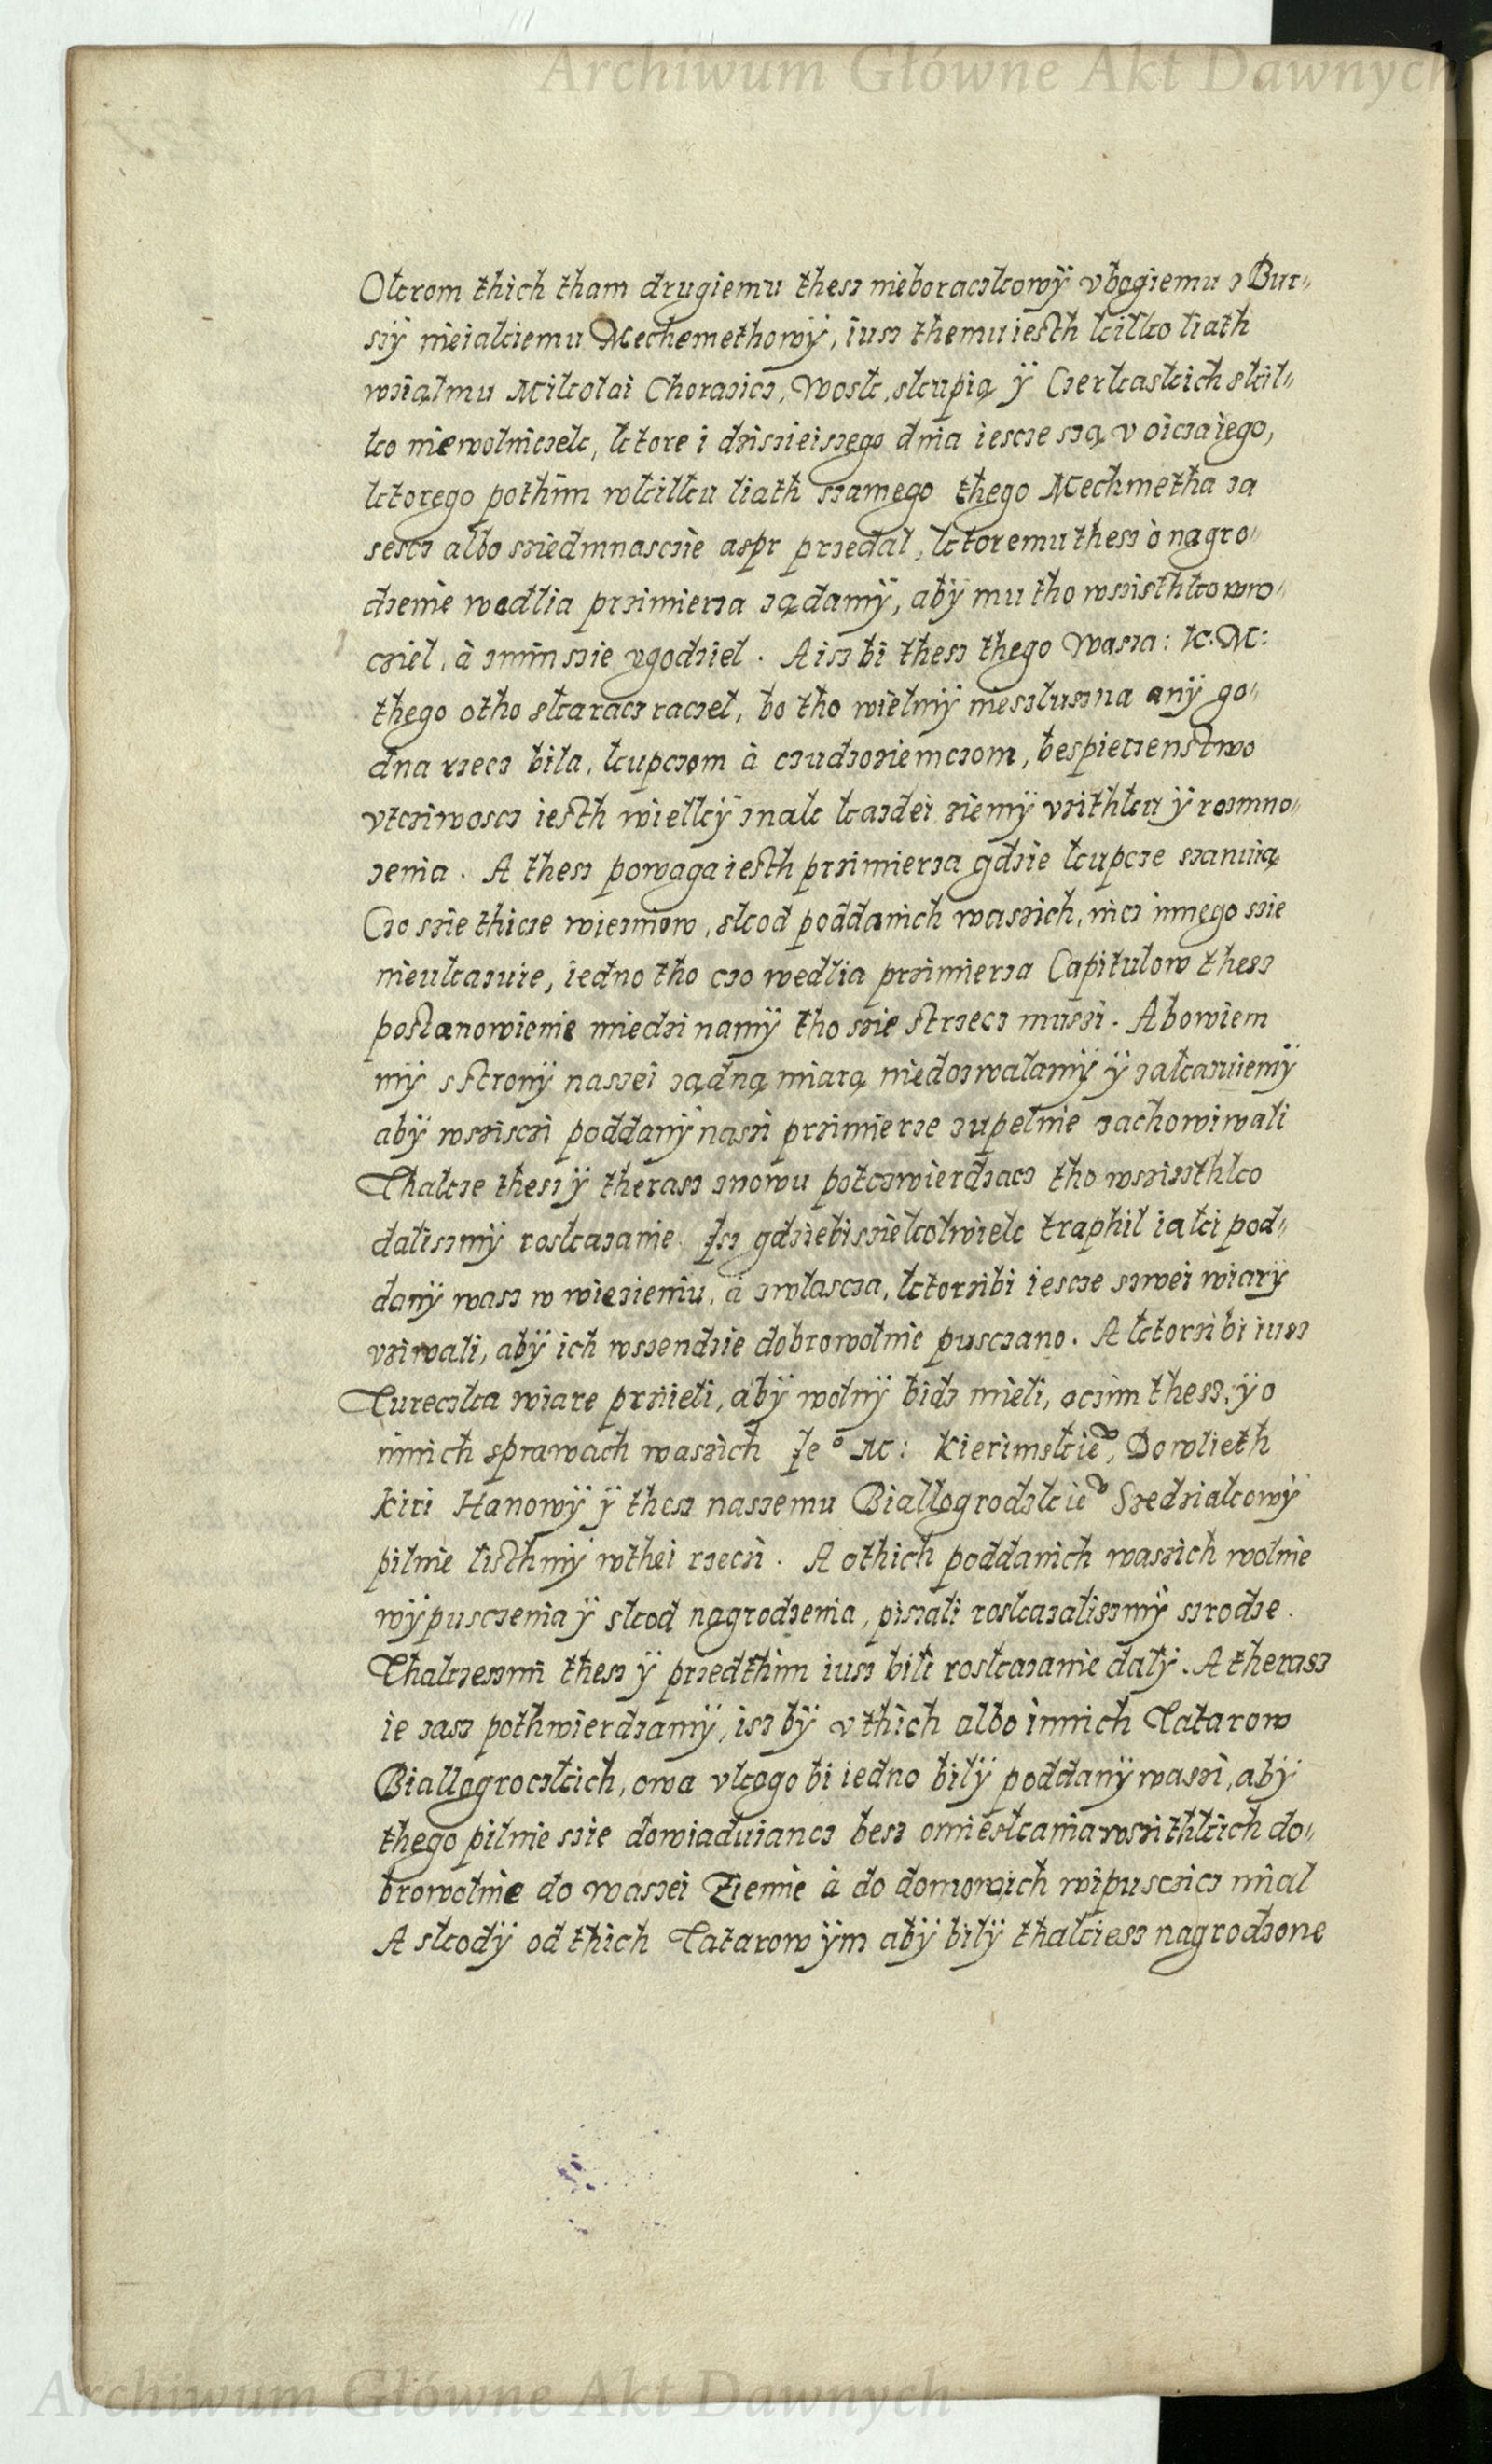 Archiwum Główne Akt Dawnych
Okrom thich tham drugiemu thesz nieboraczkowÿ vbogiemu z Bur=
szÿ nieiakiemu Mechemethowÿ, iusz themu iesth kilko liath
wziąl mu Mikolai Chorazicz, Wosk, skupią ÿ Czerkaskich skil=
ko niewolniczek, ktore i dziszieiszego dnia iescze szą v oicza iego,
ktorego pothim wkilku liath szamego thego Mechmetha za
sescz albo sziedmnasczie aspr przedal, ktoremu thesz o nagro=
dzenie wedlia przimierza ządamÿ, abÿ mu tho wszisthko wro=
cziel, à znim szie vgodziel. A isz bi thesz thego Wasza: K: M:
thego otho skaracz raczel, bo tho wielmÿ nieszluszna anÿ go=
dna rzecz bila, kupczom à czudzoziemczom, bespieczenstwo
vtcziwoscz iesth wielkÿ znak kazdei ziemÿ vzithku ÿ rozmno=
zenia. A thesz powaga iesth przimierza gdzie kupcze szanuią
Czo szie thicze wiezniow, skod poddanich waszich, nicz innego szie
nieukazuie, iedno tho czo wedlia przimierza Capitulow thesz
postanowienie miedzi namÿ tho szie strzecz muszi. Abowiem
mÿ sstronÿ naszei ządną miarą niedozwalamÿ ÿ zakazuiemÿ
abÿ wszisczi poddanÿ naszi przimierze zupelnie zachowiwali
Thakze thesz ÿ therasz znowu potczwierdzacz tho wszisszthko
daliszmÿ roskazanie. Isz gdziebiszielkolwiek traphil iaki pod=
danÿ wasz w wiezieniu, a zwlascza, ktorzibi iescze szwei wiarÿ
vziwali, abÿ ich wszendzie dobrowolnie pusczano. A ktorzibi iusz
Tureczka wiare prziieli, abÿ wolnÿ bidz mieli, oczim thesz, ÿ o
innich sprawach waszich Ie° M: Kierimskie°, Dowlieth
Kiri Hanowÿ ÿ thesz naszemu Biallogrodzkie° Szedziakowÿ
pilnie listhmÿ wthei rzeczi. A othich poddanich waszich wolnie
wÿpusczenia ÿ skod nagrodzenia, piszali roskazaliszmÿ szrodze.
Thakzeszmi thesz ÿ przedthim iusz bili roskazanie dalÿ. A therasz
ie zasz pothwierdzamÿ, isz bÿ v thich albo innich Tatarow
Biallogroczkich, owa vkogo bi iedno bilÿ poddanÿ waszi, abÿ
thego pilnie szie dowiaduiancz besz omieskania wszithkich do=
browolnie do waszei Ziemie à do domow ich wipusczicz mial
A skodÿ od thich Tatarow ÿm abÿ bilÿ thakiesz nagrodzone
Archiwum Główne Akt Dawnych